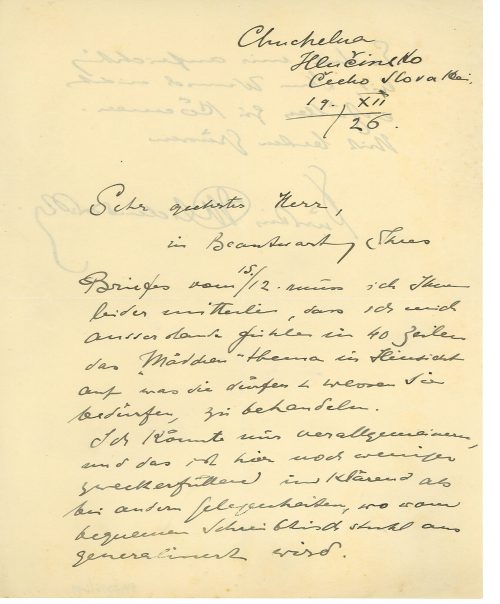 Chuchelna
Hlučinsko
Čecho Slovakei,
19. XII
26.
Sehr geehrter Herr,
in Beantwortung Ihres
Briefes vom 15./12. muss ich Ihnen
leider mitteilen, dass ich mich
ausserstande fühle in 40 Zeilen
das "Mädchen"thema in Hinsicht
auf was sie dürfen & wessen Sie
bedürfen, zu behandeln.
Ich könnte nur verallgemeinern,
und das ist hier noch weniger
zweckerfüllend und klärend als
bei andern Gelegenheiten, wo vom
bequemen Schreibtischstuhl aus
generalisiert wird.